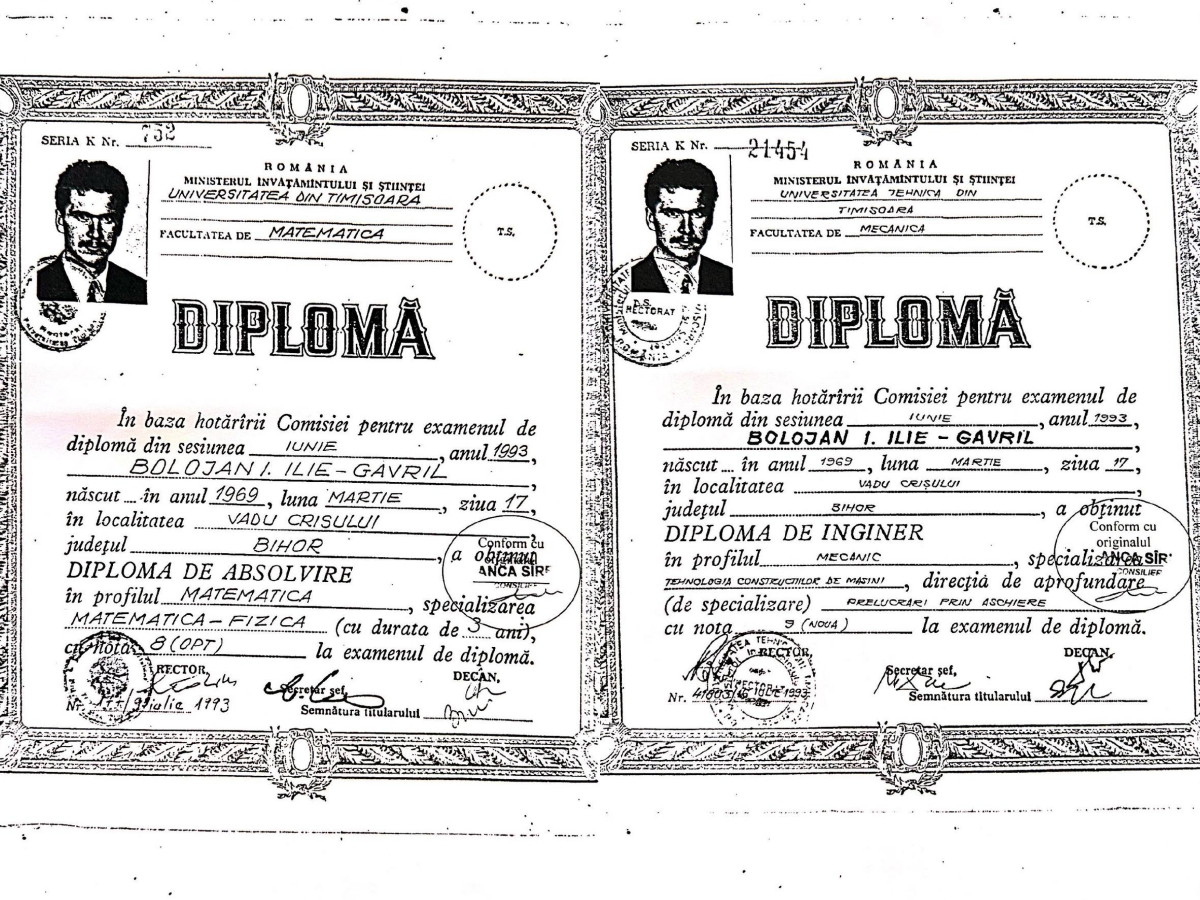 SERIA K Nr. 732
ROMÂNIA
MINISTERUL ÎNVĂȚĂMÎNTULUI ȘI ȘTIINȚEI
UNIVERSITATEA DIN TIMISOARA
FACULTATEA DE MATEMATICA
T.S.
DIPLOMĂ
În baza hotărîrii Comisiei pentru examenul de
diplomă din sesiunea IUNIE, anul 1993,
BOLOJAN I. ILIE-GAVRIL,
născut în anul 1969, luna MARTIE, ziua 17,
în localitatea VADU CRISULUI,
județul BIHOR, a obținut
DIPLOMA DE ABSOLVIRE
în profilul MATEMATICA, specializarea
MATEMATICA-FIZICA (cu durata de 3 ani),
cu nota 8 (OPT) la examenul de diplomă.
Conform cu
originalul
ANCA SÎR
CONSILIER
RECTOR,
Secretar șef,
DECAN,
Nr. iulie 1993
Semnătura titularului
SERIA K Nr. 21454
ROMÂNIA
MINISTERUL ÎNVĂȚĂMÎNTULUI ȘI ȘTIINȚEI
UNIVERSITATEA TEHNICA DIN
TIMISOARA
FACULTATEA DE MECANICA
T.S.
RECTORAT
ROMÂNIA
DIPLOMĂ
În baza hotărîrii Comisiei pentru examenul de
diplomă din sesiunea IUNIE, anul 1993,
BOLOJAN I. ILIE-GAVRIL,
născut în anul 1969, luna MARTIE, ziua 17,
în localitatea VADU CRISULUI,
județul BIHOR, a obținut
DIPLOMA DE INGINER
în profilul MECANIC, specializarea
TEHNOLOGIA CONSTRUCTIILOR DE MASINI, direcția de aprofundare
(de specializare) PRELUCRARI PRIN ASCHIERE
cu nota 9 (NOUĂ) la examenul de diplomă.
Conform cu
originalul
ANCA SÎR
CONSILIER
RECTOR,
Secretar șef,
DECAN,
Nr. 1993
Semnătura titularului